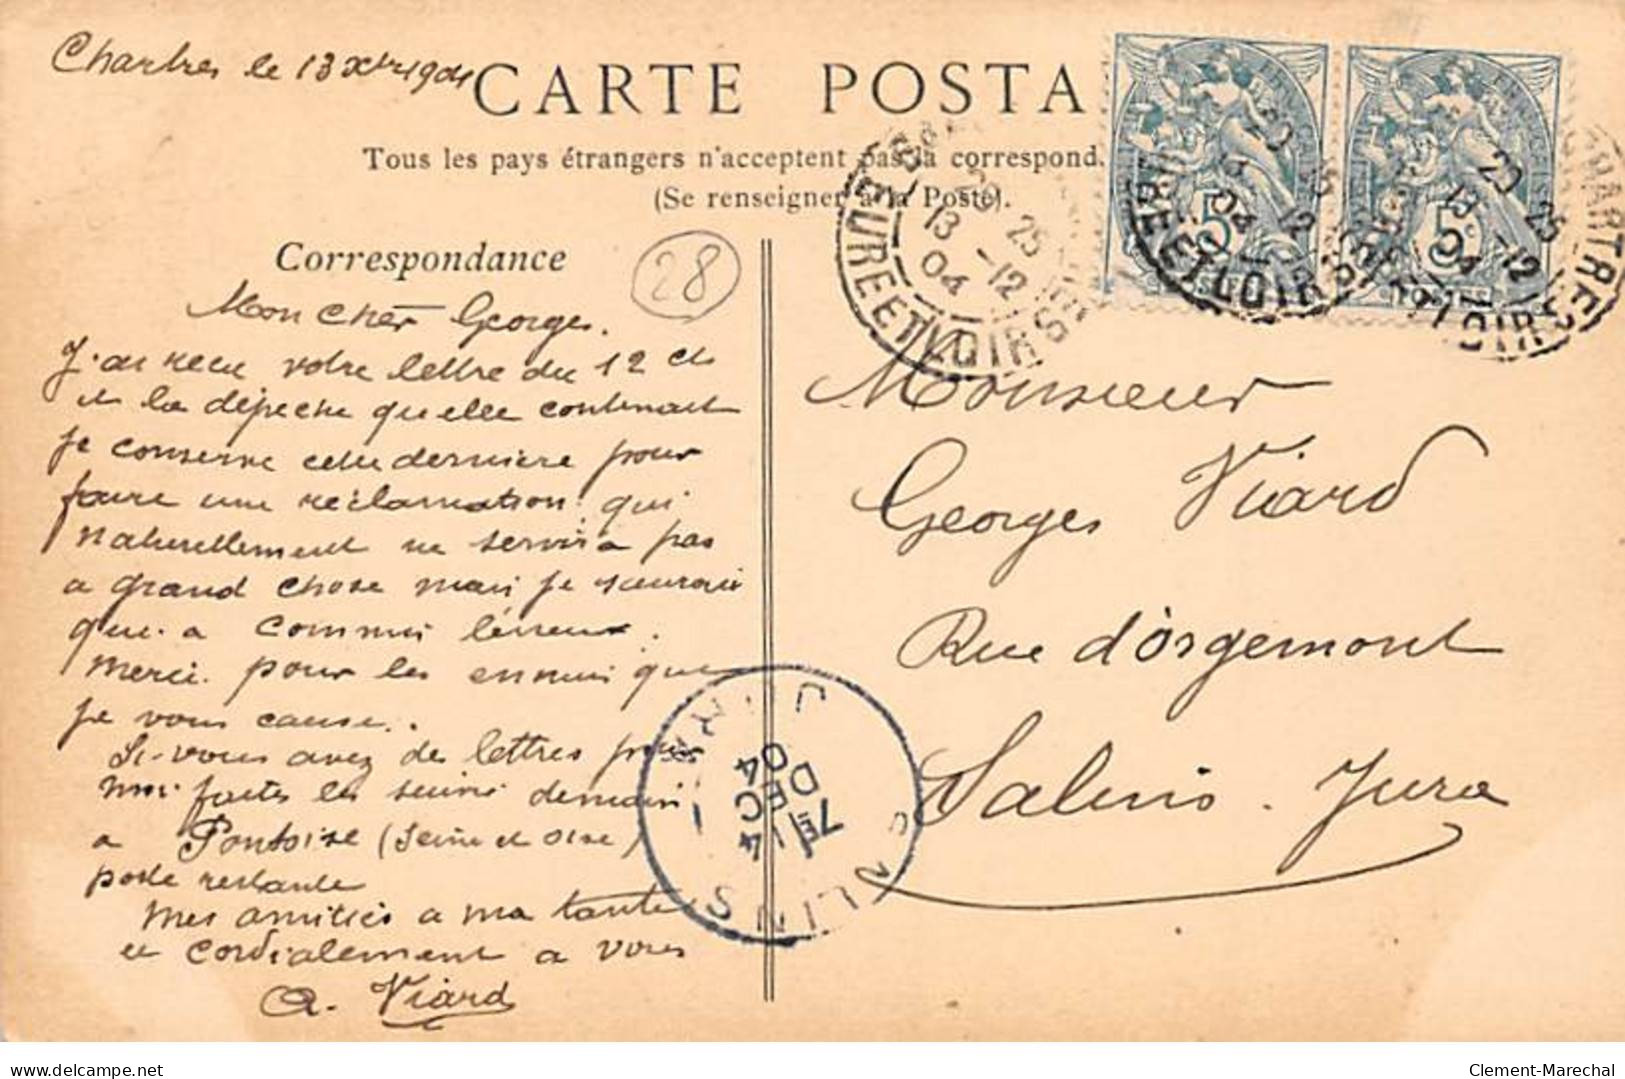 Chartres le 13 Xbre 1904
CARTE POSTA
Tous les pays étrangers n'acceptent pas la correspond.
(Se renseigner à la Poste).
Correspondance
28
Mon Cher Georges.
J'ai recu votre lettre du 12 ct
et la dépeche quelle contenait
je conserve cette derniere pour
faire une réclamation qui
naturellement ne servira pas
a grand chose mais je saurai
qui a commis l'erreur.
Merci pour les ennuis que
je vous cause.
Si vous avez des lettres pour
moi faites les suivre demain
a Pontoise (Seine et Oise)
poste restante
Mes amitiés a ma tante
et cordialement a vous
A. Viard
Monsieur
Georges Viard
Rue d'Orgemont
Salins. Jura
20 25
13 -12
04
EURE ET LOIR
20 25
13 -12
04
EURE ET LOIR
20 25
13 -12
04
CHARTRES
LOIR
5c
5c
SALINS
7E 14
DEC
04
JURA
delcampe.net
Clement-Marechal